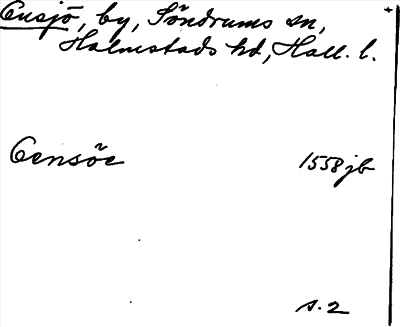 Ensjö, by, Söndrums sn,
Halmstads hd, Hall. l.
Eensöe 1558 jb
s. 2